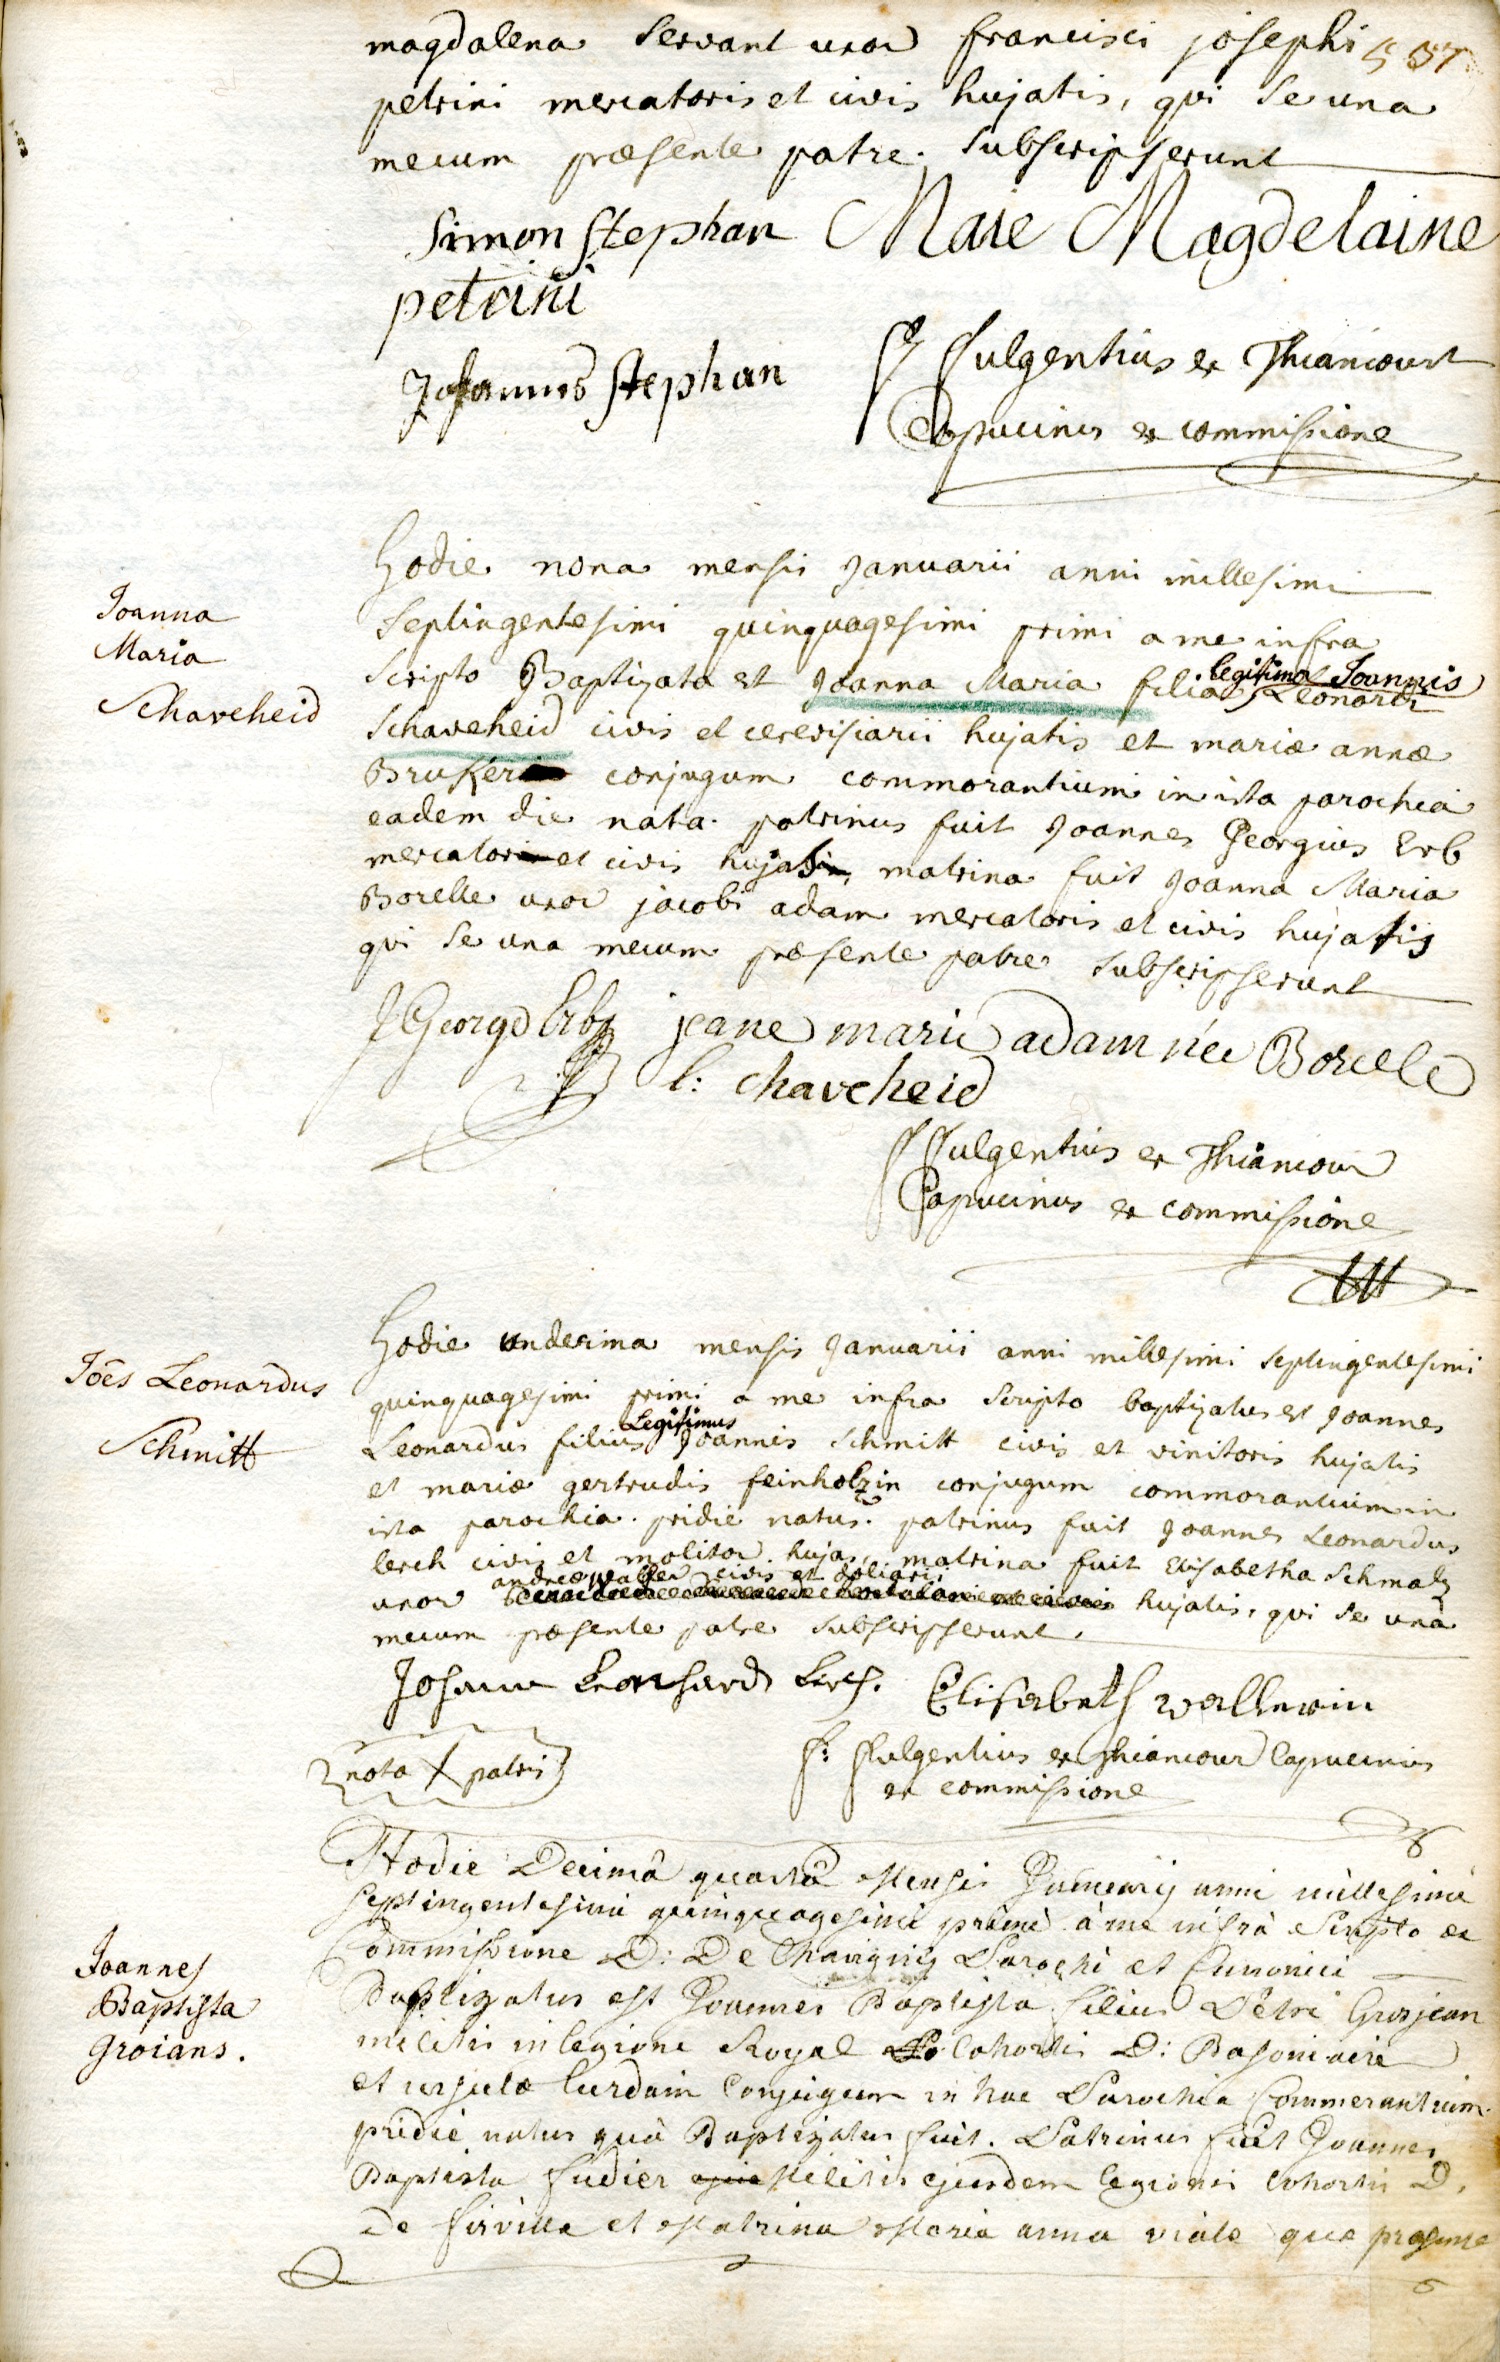 magdalena Servant uxor francisci josephi 557
petrini mercatoris et civis hujatis, qui se una
mecum præsente patre subscripserunt
Simon Stephan Marie Magdelaine
petrini
Johannes Stephan
f fulgentius ex Thiancourt
Capucinus ex commissione
Hodie nona mensis Januarii anni millesimi
Joanna
Maria
Schaveheid
septingentesimi quinquagesimi primi a me infra
scripto Baptizata est Joanna Maria filia legitima Joannis Leonardi
Schaveheid civis et cerevisiarii hujatis et mariæ annæ
Bruker conjugum commorantium in ista parochia
eadem die nata. patrinus fuit Joannes Georgius Erb
mercator et civis hujas, matrina fuit Joanna Maria
Borelle uxor jacobi adam mercatoris et civis hujatis
qui se una mecum præsente patre subscripserunt
J Georg Erb jeane marie adam née Borelle
l: chaveheid
f fulgentius ex Thiancour
Capucinus ex commissione
Hodie undecima mensis Januarii anni millesimi septingentesimi
Jôes Leonardus
Schmitt
quinquagesimi primi a me infra scripto baptizatus est Joannes
Leonardus filius Legitimus Joannis Schmitt civis et vinitoris hujatis
et mariæ gertrudis feinholzin conjugum commorantium in
ista parochia. pridie natus. patrinus fuit Joannes Leonardus
lerch civis et molitor hujas, matrina fuit Elisabetha Schmalz
uxor andreæ waller civis et doliarii hujatis, qui se una
mecum præsente patre subscripserunt.
Johann Leonhard Lerch. Elisabeth wallerin
nota X patris
f: fulgentius ex Thiancour Capucinus
ex commissione
Hodie Decimâ quartâ Mensis Januarij anni millesimi
septingentesimi quinquagesimi primi à me infrà Scripto ex
Joannes
Baptista
Groians.
Commissione D: De Chavigny Parochi et Canonici
Baptizatus est Joannes Baptista filius Petri Grosjean
militis in legione Royal Cohortis D:
et ursulæ Conjugum in hac Parochia Commorantium
pridie natus quâ Baptizatus fuit. Patrinus fuit Joannes
Baptista fudier Militis ejusdem legionis Cohortis D.
De firville et Matrina Maria anna viale quæ præsente